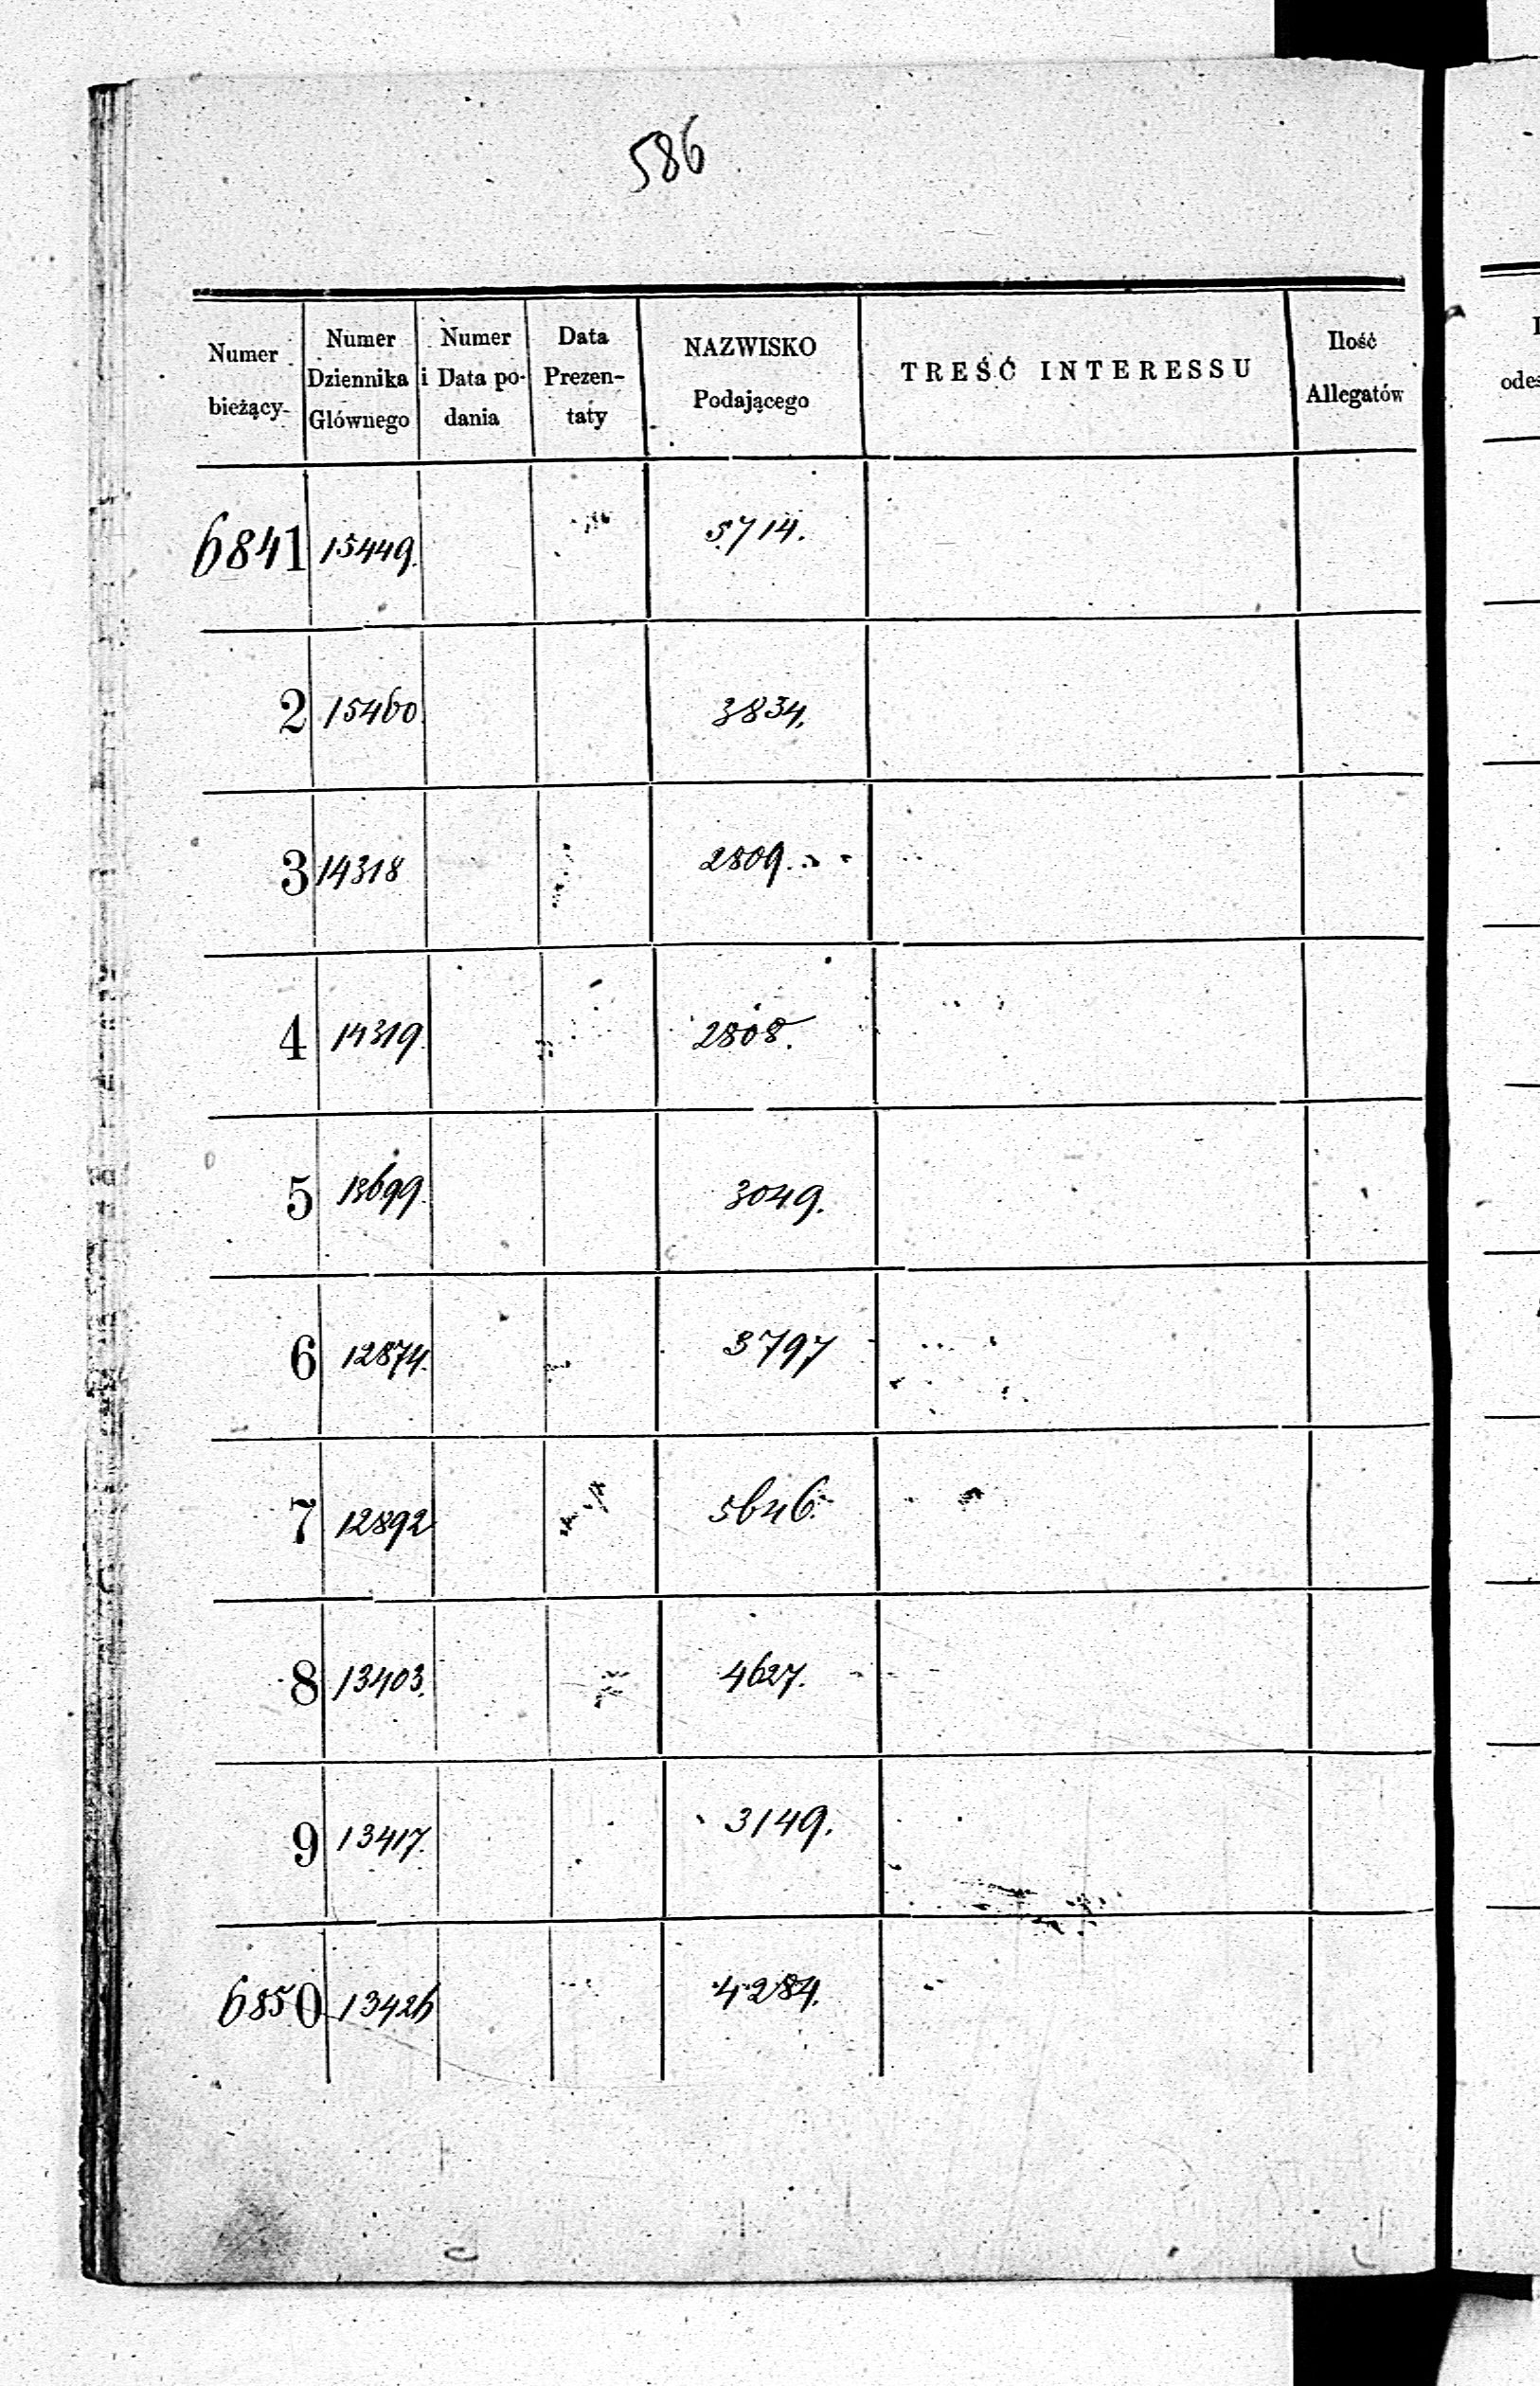 586
Numer bieżący- Numer Dziennika Głównego Numer i Data po- dania Data Prezen- taty NAZWISKO Podającego TREŚĆ INTERESSU Ilość Allegatów
6841 15449. 5714.
2 15460. 3834.
3 14318 2809.
4 14319. 2808.
5 13699. 3049.
6 12874. 3797
7 12892 5646.
8 13403. 4627.
9 13417. 3149.
6850 13426 4284.